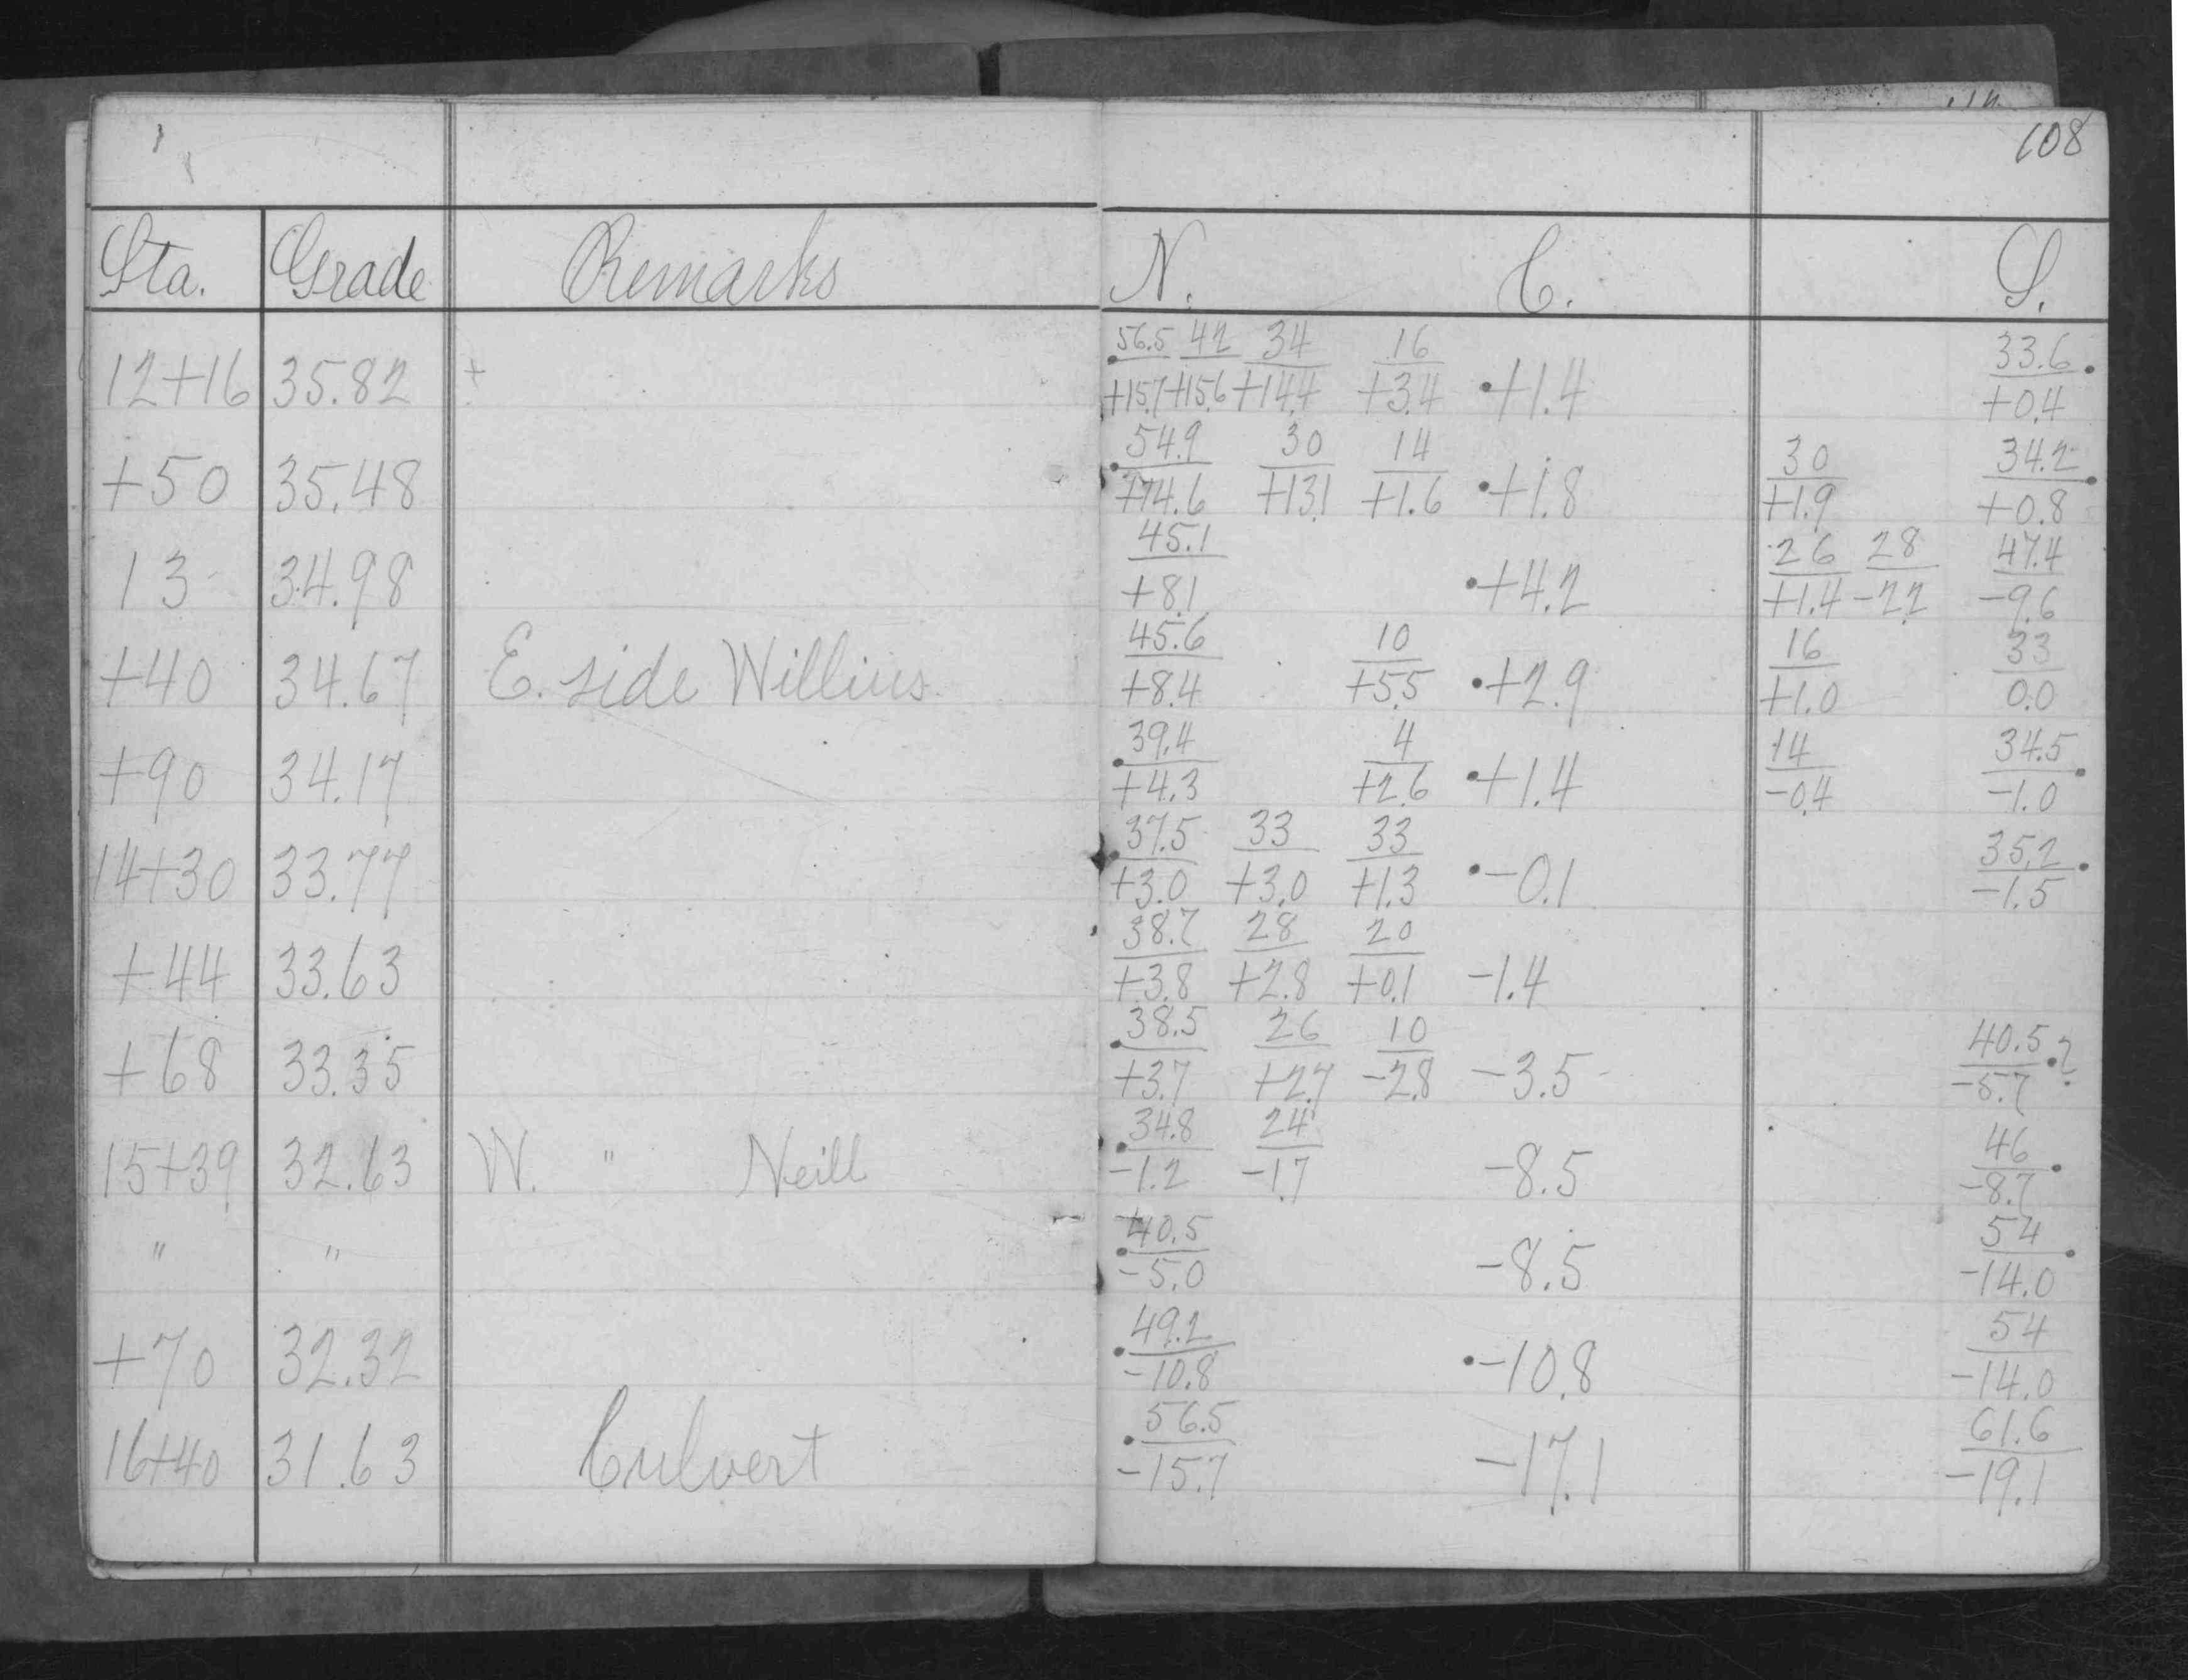 108
Sta. Grade Remarks N. C. S.
56.5 42 34 16 33.6
12+16 35.82 + +15.7 +15.6 +14.4 +3.4 +1.4 +0.4
54.9 30 14 30 34.2
+50 35.48 +14.6 +13.1 +1.6 +1.8 +1.9 +0.8
45.1 26 28 47.4
13 34.98 +8.1 +4.2 +1.4 -2.2 -9.6
45.6 10 16 33
+40 34.67 E. side Willius +8.4 +5.5 +2.9 +1.0 0.0
39.4 4 14 34.5
+90 34.17 +4.3 +2.6 +1.4 -0.4 -1.0
37.5 33 33 35.2
14+30 33.77 +3.0 +3.0 +1.3 -0.1 -1.5
38.7 28 20
+44 33.63 +3.8 +2.8 +0.1 -1.4
38.5 26 10 40.5 ?
+68 33.35 +3.7 +2.7 -2.8 -3.5 -5.7
34.8 24 46
15+39 32.63 W. " Neill -1.2 -1.7 -8.5 -8.7
40.5 54
" " -5.0 -8.5 -14.0
49.2 54
+70 32.32 -10.8 -10.8 -14.0
56.5 61.6
16+40 31.63 Culvert -15.7 -17.1 -19.1